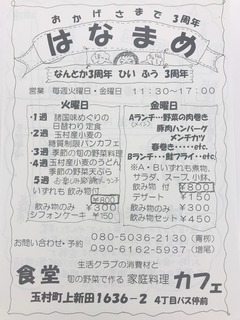 おかげさまで3周年
はなまめ
なんとか3周年 ひい ふう 3周年
営業 毎週火曜日・金曜日 11:30〜17:00
火曜日
・1週 諸国味めぐりの
日替わり定食
・2週 玉村産小麦の
糖質制限パンカフェ
・3週 季節の旬の野菜料理
・4週 玉村産小麦のうどん
季節の野菜天ぷら
・5週 お楽しみ
いずれも 飲み物 付
¥800
飲み物のみ ¥300
シフォンケーキ ¥150
金曜日
Aランチ…野菜の肉巻き
(メイン) 豚肉ハンバーグ
メンチカツ
春巻き・・・・・etc.
Bランチ…魚フライ‥etc
※A・Bいずれも煮物、
サラダ、スープ、小鉢、
飲み物付 ¥800
デザート ¥150
飲み物のみ ¥300
飲み物セット ¥450
お問い合わせ・予約 080-5036-2130 (青柳)
090-6162-5937 (増尾)
生活クラブの消費材と
食堂 旬の野菜で作る 家庭料理 カフェ
玉村町上新田1636-2 4丁目バス停前